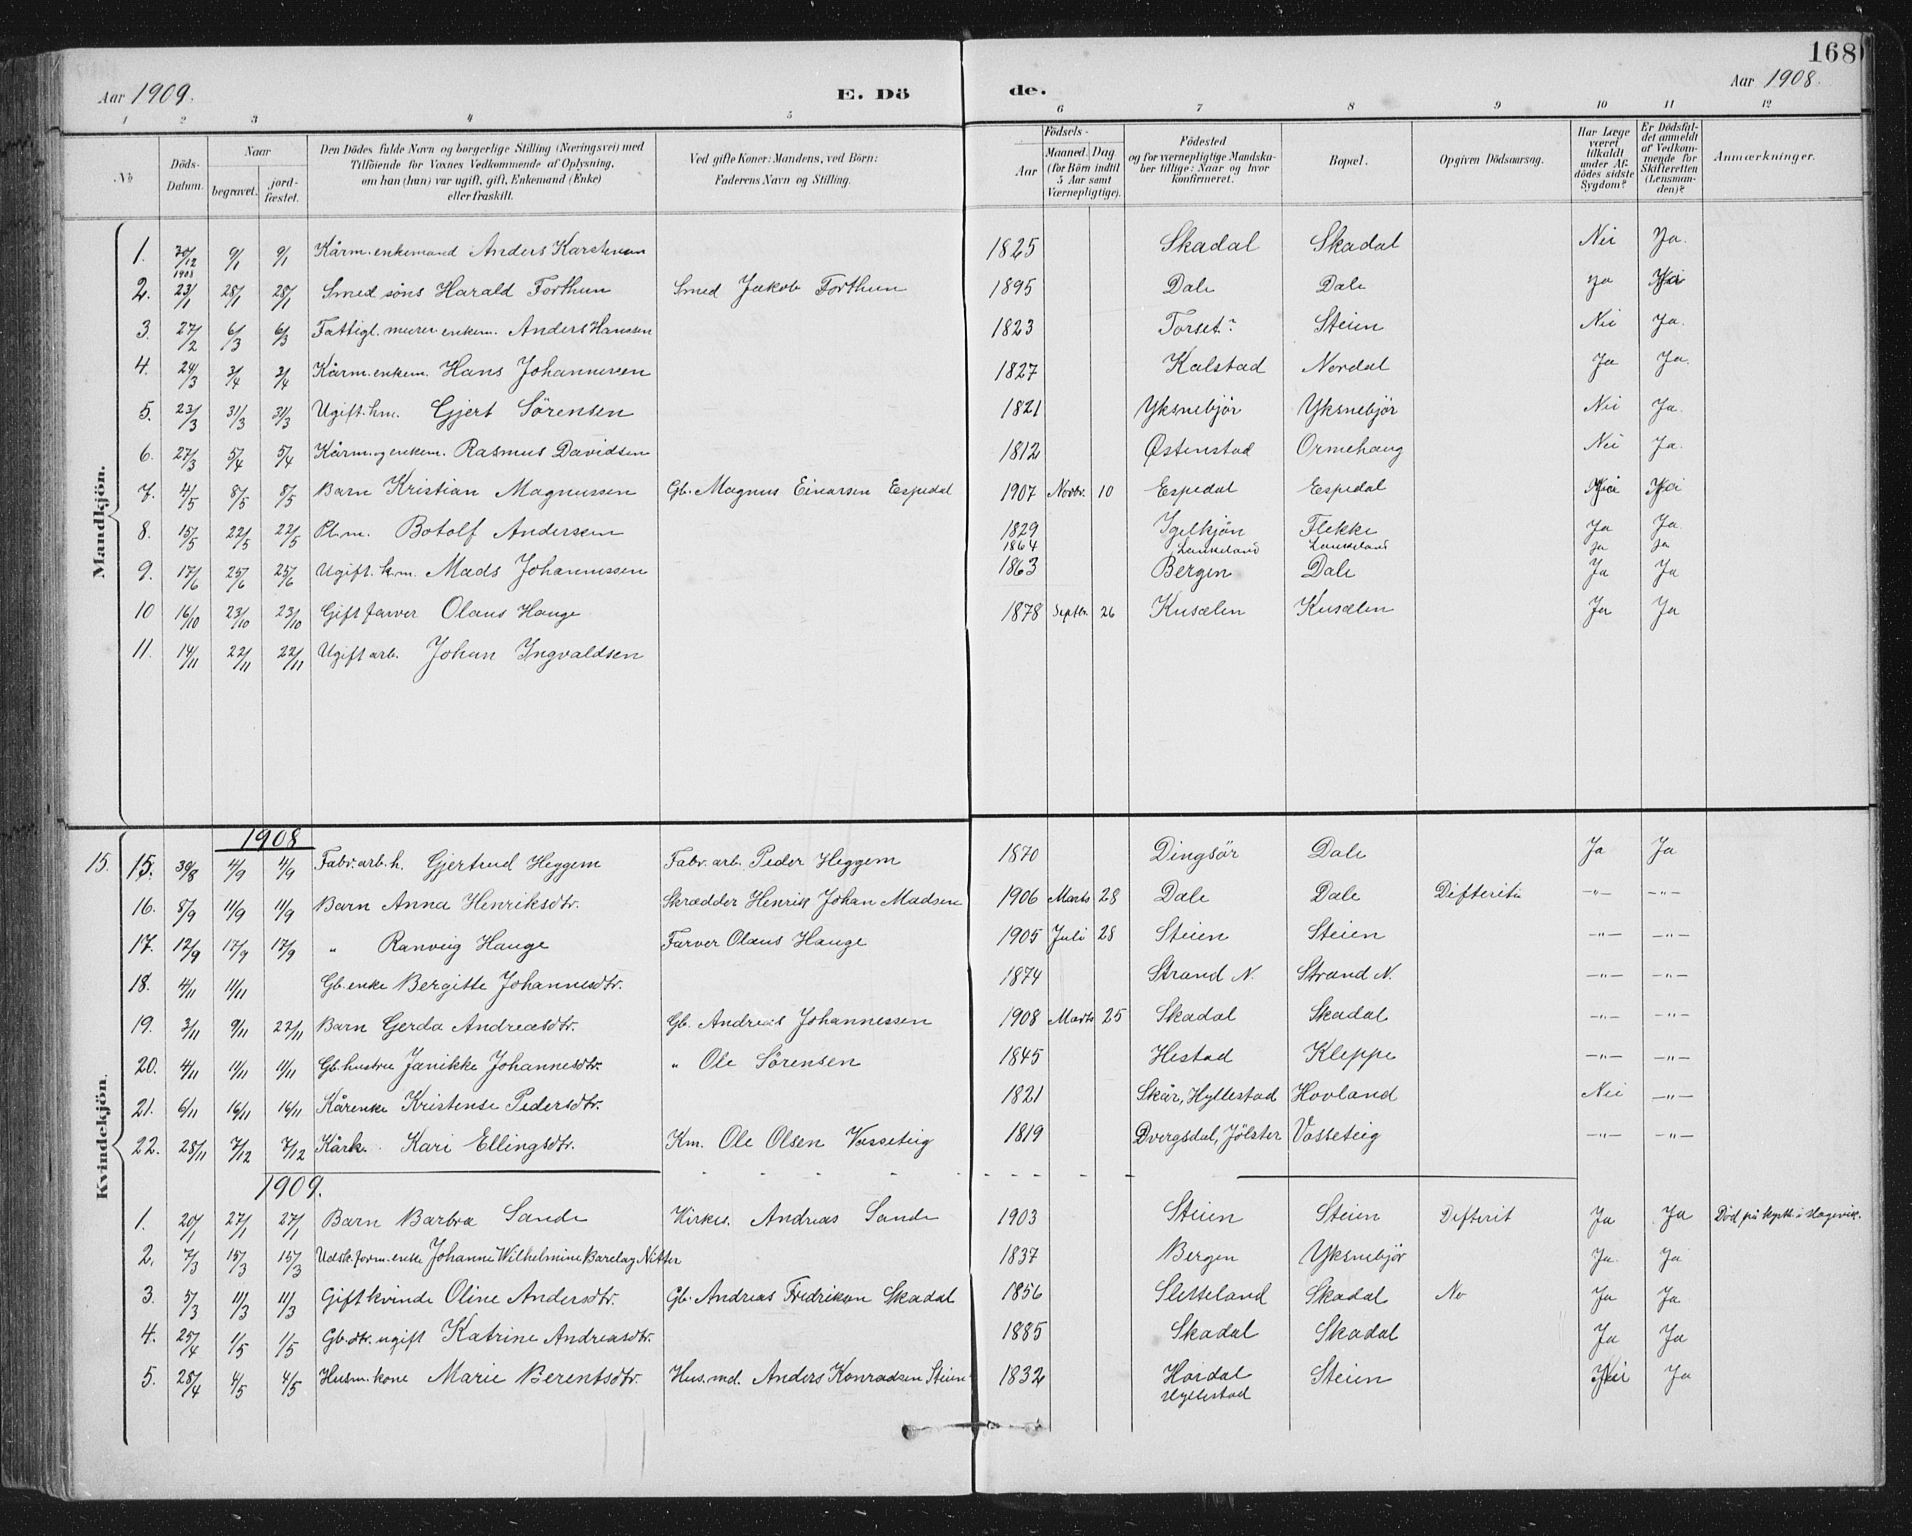 168
Aar 1909.
E. Dö
de.
Aar 1908.
1 2 3 4 5 6 7 8 9 10 11 12
No
Döds-Datum.
Naar
begravet.
jord-fæstet.
Den Dödes fulde Navn og borgerlige Stilling (Næringsvei) med Tilföiende for Voxnes Vedkommende af Oplysning, om han (hun) var ugift, gift, Enkemand (Enke) eller fraskilt.
Ved gifte Koner: Mandens, ved Börn: Faderens Navn og Stilling.
Födsels-
Aar
Maaned. Dag (for Börn indtil 5 Aar samt Værnepligtige).
Födested og for værnepligtige Mandska-ber tillige: Naar og hvor konfirmeret.
Bopæl.
Opgiven Dödsaarsag.
Har Læge været tilkaldt under Af-dödes sidste Sygdom?
Er Dödsfal-det anmeldt af Vedkom-mende for Skifteretten (Lensman-den)?
Anmærkninger.
Mandkjön.
1. 30/12 1908 9/1 9/1 Kårm. enkemand Anders Karstensen 1825 Skadal Skadal Nei Ja.
2. 23/1 28/1 28/1 Smed søns Harald Forthun Smed Jakob Forthun 1895 Dale Dale Ja
3. 27/2 6/3 6/3 Fattigl. murer enkem. Anders Hanssen 1823 Torset? Steien Nei Ja.
4. 24/3 3/4 3/4 Kårm. enkem. Hans Johannessen 1827 Kalstad Nordal Ja Ja.
5. 23/3 31/3 31/3 Ugift. hm. Gjert Sörensen 1821 Yksnebjör Yksnebjör Nei Ja.
6. 27/3 5/4 5/4 Kårm. og enkem. Rasmus Davidsen 1812 Østenstad Ormehaug Nei Ja.
7. 4/5 8/5 8/5 Barn Kristian Magnussen Gb. Magnus Einarsen Espedal 1907 Novbr. 10 Espedal Espedal
8. 15/5 22/5 22/5 Pl.m. Botolf Andersen 1829 Igelkjön Flekke Ja Ja.
1864 Lankeland Lankeland Ja Ja
9. 17/6 25/6 25/6 Ugift. k.m. Mads Johannessen 1863 Bergen Dale Ja Ja
10 16/10 23/10 23/10 Gift farver Olaus Hauge 1878 Septbr. 26 Kusælen Kusælen Ja Ja
11. 14/11 22/11 22/11 Ugift arb. Johan Ingvaldsen
Kvindekjön.
1908
15. 15. 30/8 4/9 4/9 Fabr. arb. h. Gjertrud Heggem Fabr. arb. Peder Heggem 1870 Dingsör Dale Ja Ja
16. 8/9 11/9 11/9 Barn Anna Henriksdtr. Skrædder Henrik Johan Madsen 1906 Marts 28 Dale Dale Difteriti -"- -"-
17. 12/9 17/9 17/9 " Ranveig Hauge Farver Olaus Hauge 1905 Juli 28 Steien Steien -"- -"-
18. 4/11 11/11 Gb. enke Bergitte Johannesdtr. 1874 Strand N. Strand N. -"- -"-
19. 3/11 9/11 22/11 Barn Gerda Andreasdtr. Gb. Andreas Johannessen 1908 Marts 25 Skadal Skadal -"- -"-
20. 4/11 11/11 11/11 Gb. hustru Janikke Johannesdtr. " Ole Sörensen 1845 Hestad Kleppe -"- -"-
21. 6/11 16/11 16/11 Kårenke Kristense Pedersdtr. 1821 Skår, Hyllestad Hovland Nei -"-
22. 28/11 7/12 7/12 Kårk. Kari Ellingsdtr. Km. Ole Olsen Vasseteig 1819 Dvergsdal, Jölster Vasseteig -"- -"-
1909.
1. 20/1 27/1 27/1 Barn Barbra Sande Kirkes. Andreas Sande 1903 Steien Steien Difterit Ja Ja
2. 7/3 15/3 15/3 Udsk. form. enke Johanne Wilhelmine Barclay Nitter 1837 Bergen Yksnebjör Ja. Ja
3. 5/3 11/3 11/3 Gift kvinde Oline Andersdtr. Gb. Andreas Fredrikson Skadal 1856 Sletteland Skadal No Ja Ja
4. 25/4 1/5 1/5 Gb. dtr. ugift Katrine Andreasdtr. 1885 Skadal Skadal Ja Ja
5. 28/4 4/5 4/5 Husm. kone Marie Berentsdtr. Hus.md. Anders Konradsen Steien 1832 Hovdal Hyllestad Steien Nei Ja